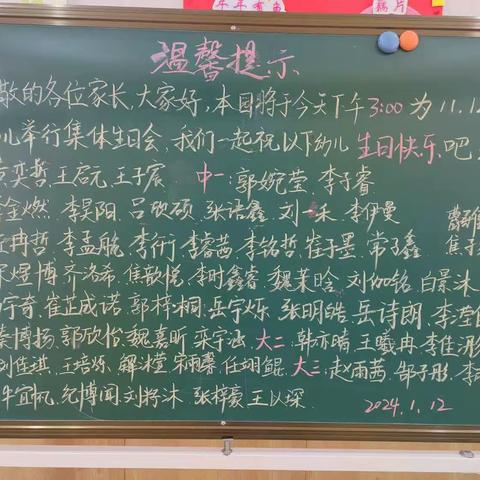 温馨提示
敬的各位家长,大家好,本园将于今天下午3:00为11.12
儿举行集体生日会,我们一起祝以下幼儿生日快乐吧
奕哲.王启元.王子宸 中一:郭婉莹.李子睿
燃.李昊阳.吕欣硕.张语鑫.刘一禾.李伊曼
冉哲.李孟航.李衍.李睿茜.李铭哲.崔子墨.常子鑫.
煜博.齐洛希.焦歆悦.李时鑫睿.魏茉晗.刘伽铭.白景沐
奇.崔正成诺.郭梓桐.岳宇烁.张明皓.岳诗朗.李滢
博扬.郭欣怡.魏嘉昕.栾宇涵.大二:韩亦晴.王曦冉.李佳
刘佳琪.王培烁.解沐萱.宋雨馨.任翊鲲.大三:赵雨茜.郜子彤.李
牛宜帆.纪博闻.刘梓沐.张梓豪.王以琛.
2024.1.12